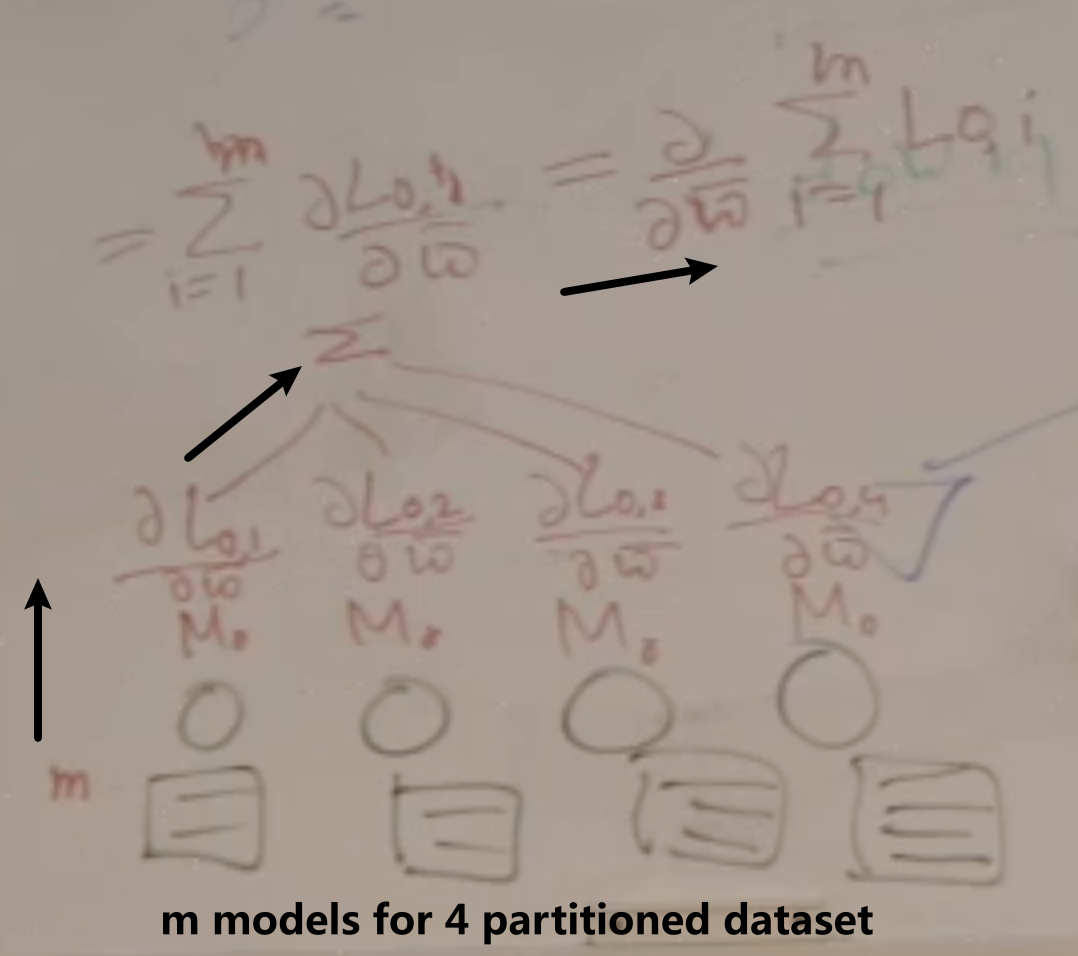 = m∑i=1 ∂L0,i/∂w̄ = ∂/∂w̄ m∑i=1 L0,i
∑
∂L0,1/∂w̄ ∂L0,2/∂w̄ ∂L0,3/∂w̄ ∂L0,4/∂w̄
M0 M0 M0 M0
m
m models for 4 partitioned dataset